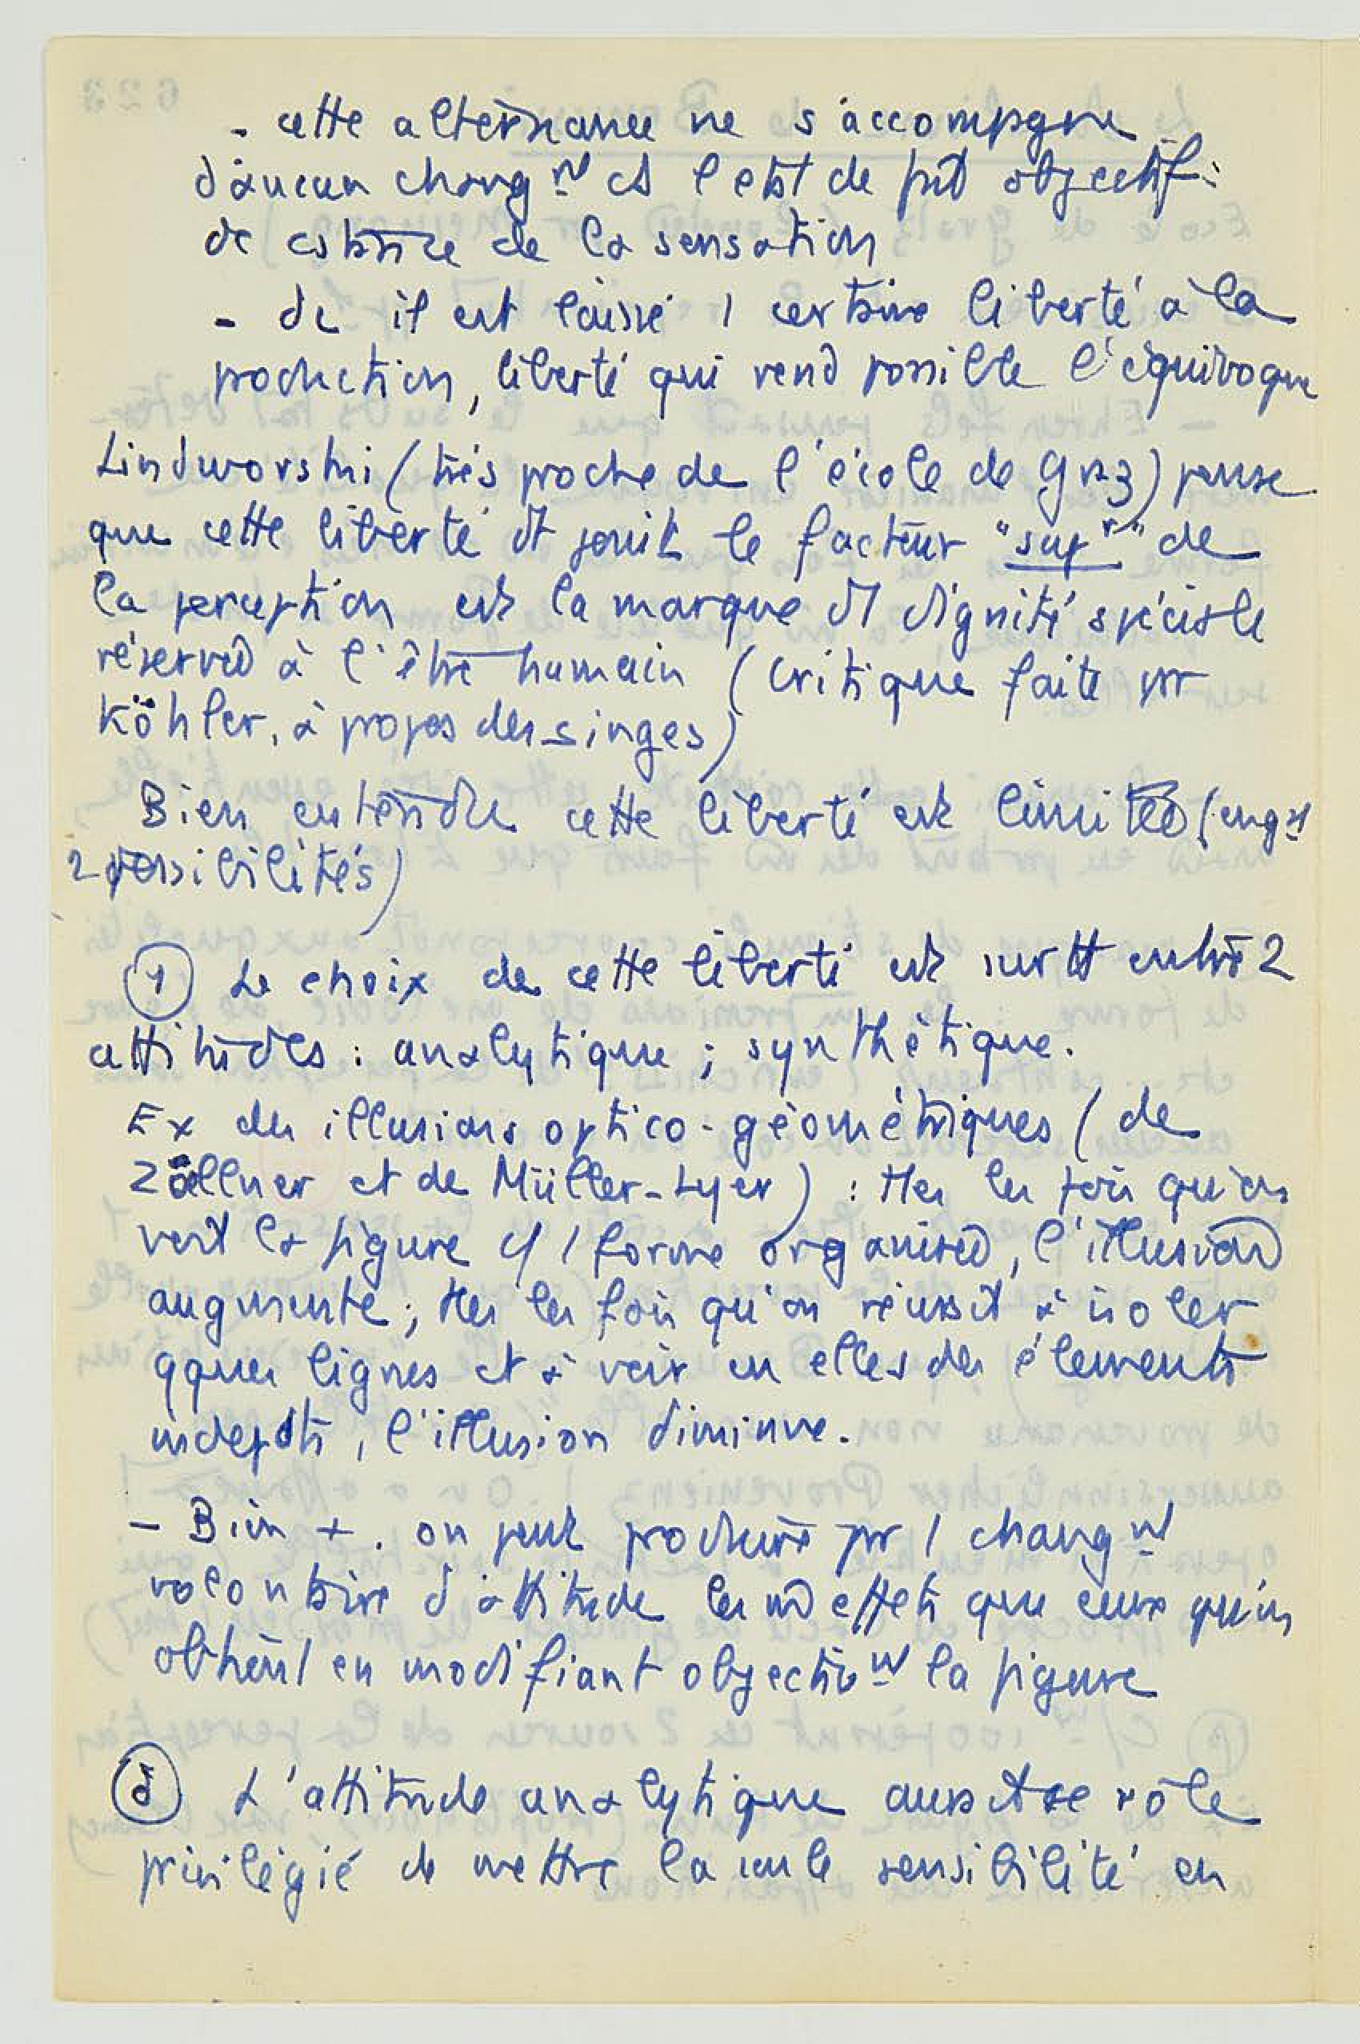 - cette alternance ne s'accompagne
d'aucun chang^nt ds l'etat de fait objectif
de de la sensation
- dc il est laissé 1 certaine liberté à la
production, liberté qui rend possible l'équivoque
Lindworski (très proche de l'école de Graz) pense
que cette liberté dt jouit le facteur "sup^r" de
la perception est la marque dt dignité spéciale
réservée à l'être humain (critique faite pr
Köhler, à propos des singes)
Bien entendu cette liberté est limitée (
2 possibilités)
(1) Le choix de cette liberté est surtt entre 2
attitudes : analytique ; synthétique.
Ex des illusions optico-géométriques (de
Zöllner et de Müller-Lyer) : ttes les fois qu'on
voit la figure c/ 1 forme organisée, l'illusion
augmente ; ttes les fois qu'on réussit à isoler
qques lignes et à voir en elles des éléments
indepdts, l'illusion diminue.
- Bien +. on peut produire pr 1 chang^nt
volontaire d'attitude les m effets que ceux qu'on
obtient en modifiant objectiv^nt la figure
L'attitude analytique aussi le rôle
privilégié de mettre la seule sensibilité en